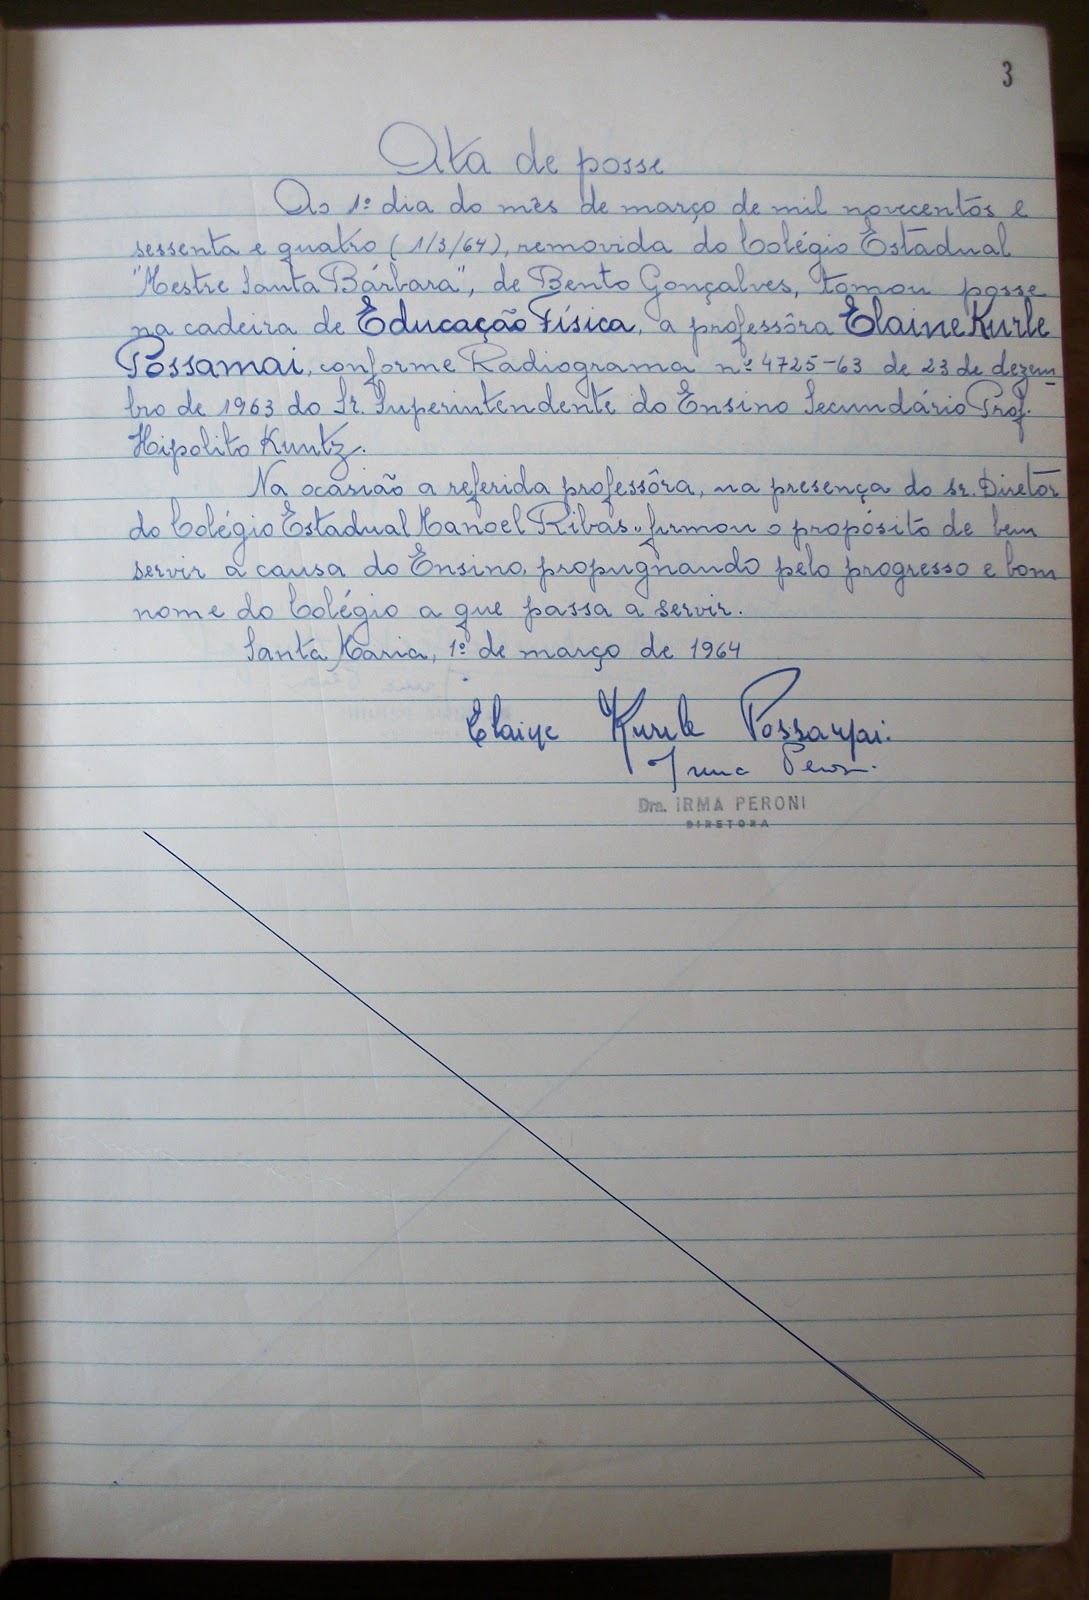 3
Ata de posse
Ao 1º dia do mês de março de mil novecentos e
sessenta e quatro (1/3/64), removida do Colégio Estadual
"Mestre Santa Bárbara", de Bento Gonçalves, tomou posse
na cadeira de Educação Física, a professôra Elaine Kurle
Possamai, conforme Radiograma nº 4725-63 de 23 de dezem-
bro de 1963 do Sr. Superintendente do Ensino Secundário Prof.
Hipolito Kuntz.
Na ocasião a referida professôra, na presença do sr. Diretor
do Colégio Estadual Manoel Ribas, firmou o propósito de bem
servir a causa do Ensino, propugnando pelo progresso e bom
nome do Colégio a que passa a servir.
Santa Maria, 1º de março de 1964
Elaine Kurle Possamai.
Irma Peroni
Dra. IRMA PERONI
DIRETORA